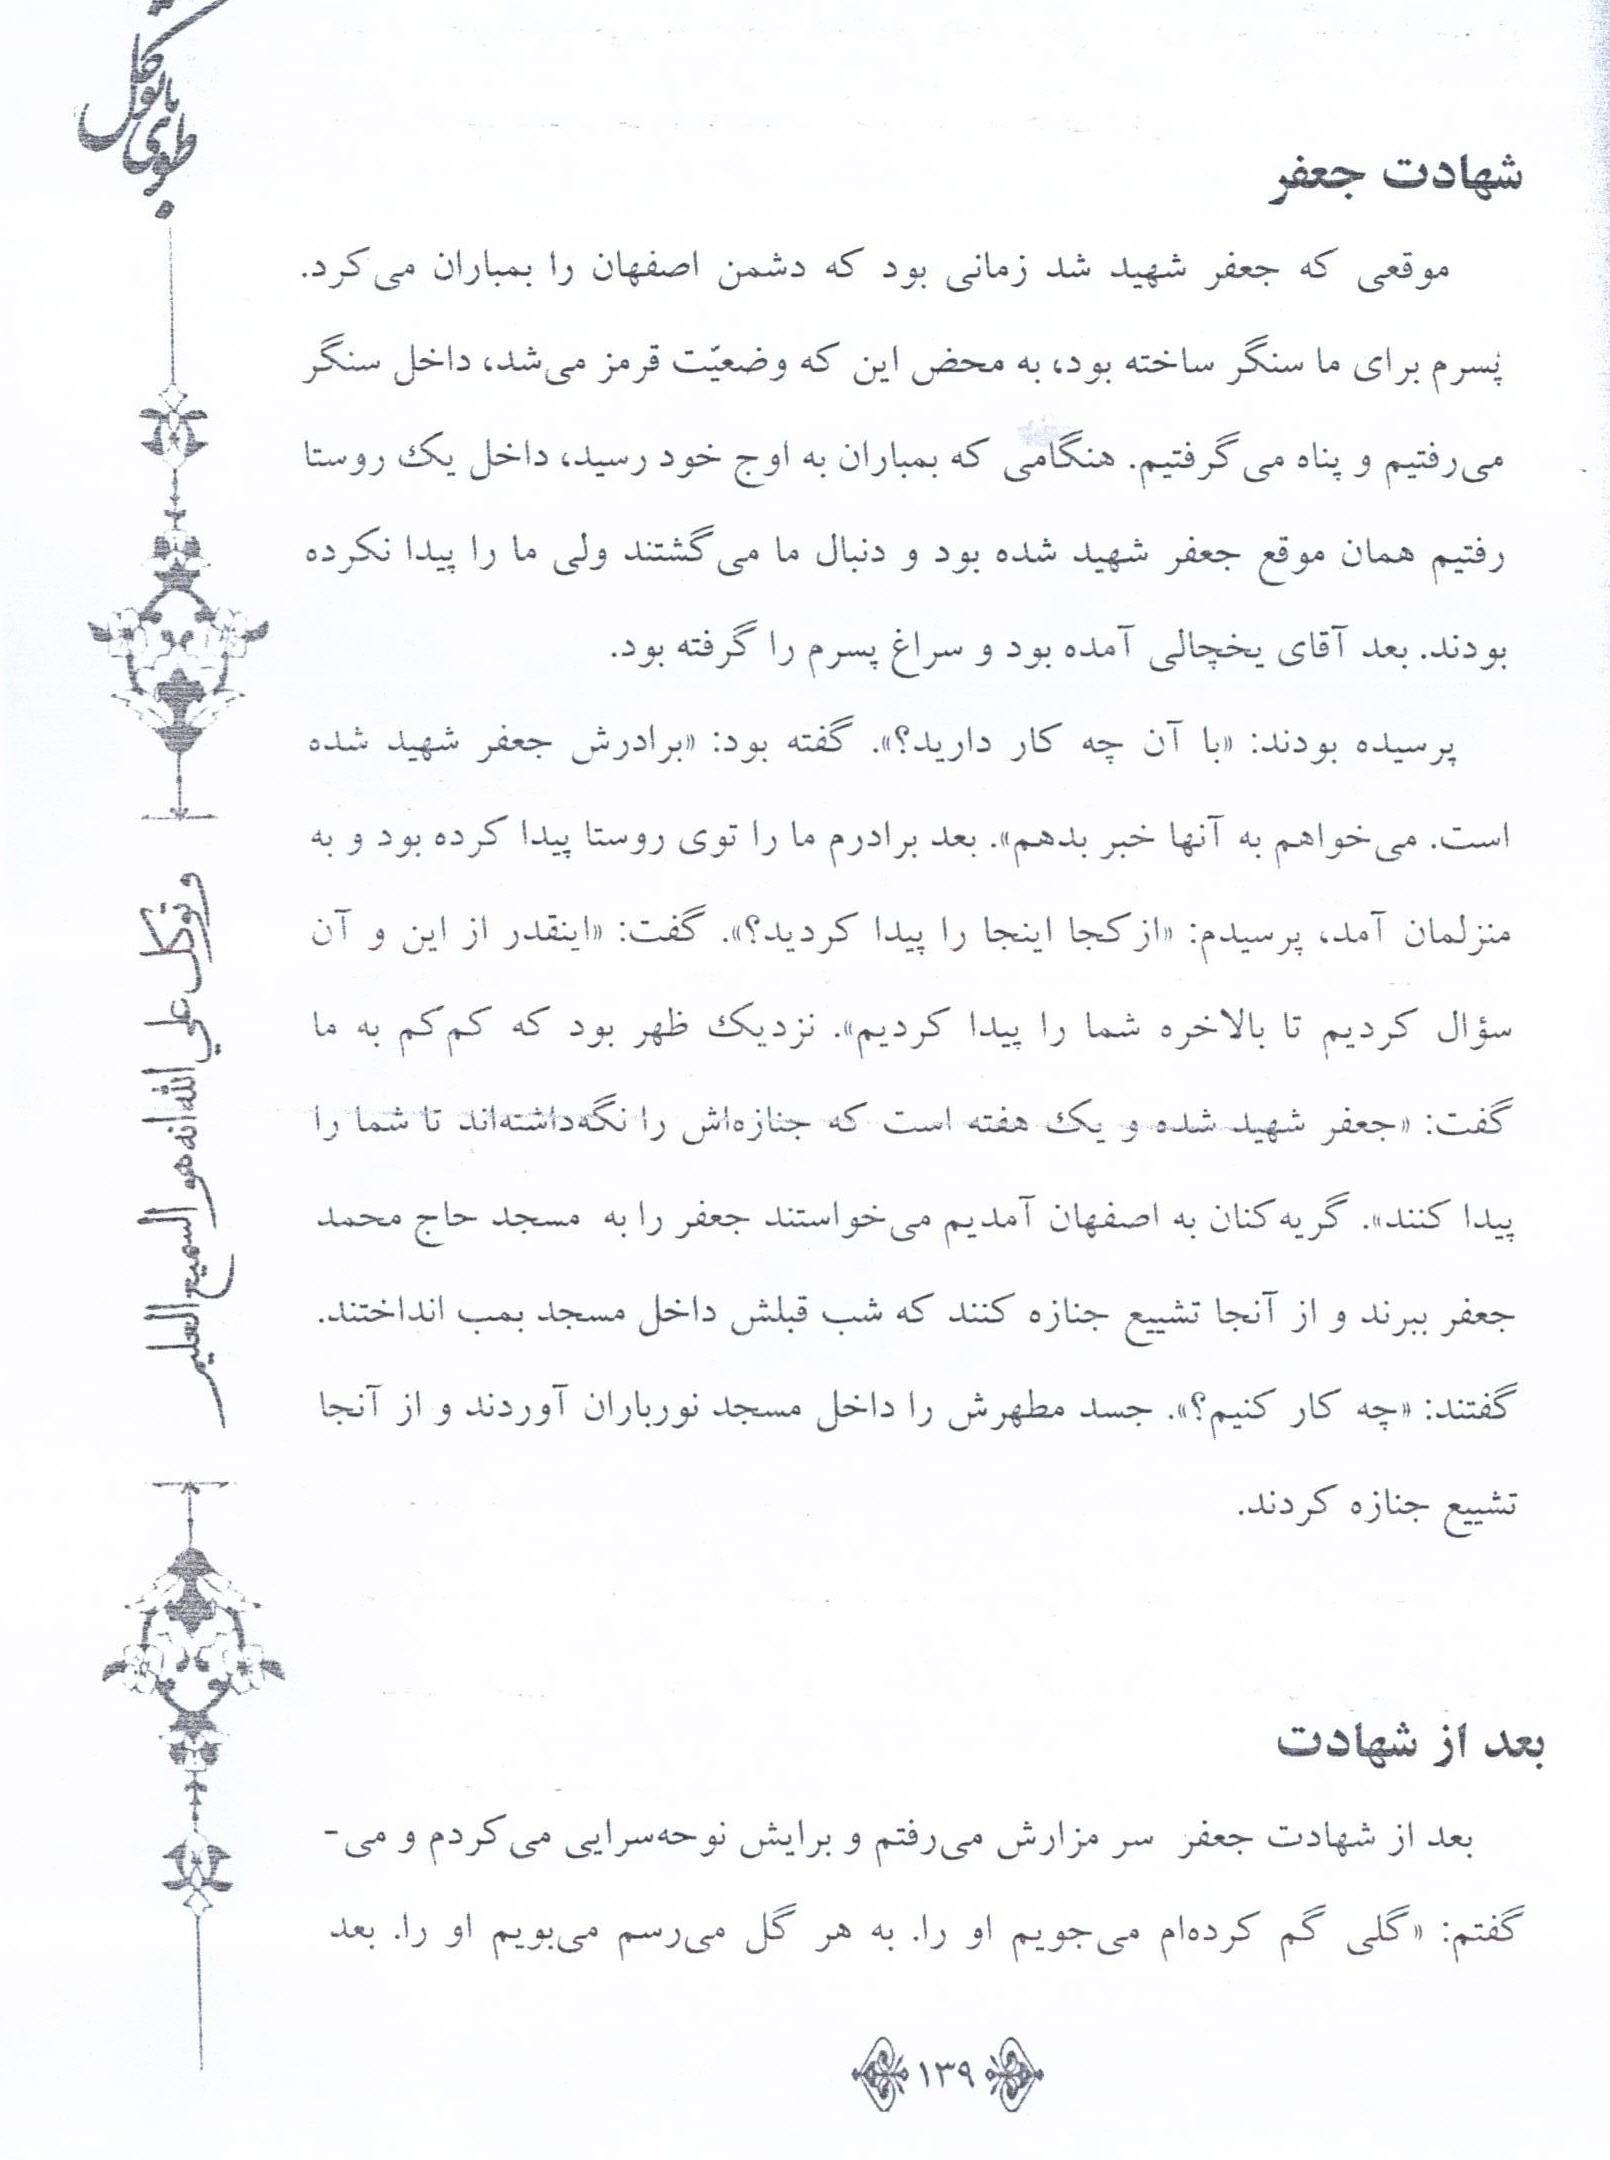 طوبای با توکل
شهادت جعفر
موقعی که جعفر شهید شد زمانی بود که دشمن اصفهان را بمباران می‌کرد.
پسرم برای ما سنگر ساخته بود، به محض این که وضعیّت قرمز می‌شد، داخل سنگر
می‌رفتیم و پناه می‌گرفتیم. هنگامی که بمباران به اوج خود رسید، داخل یک روستا
رفتیم همان موقع جعفر شهید شده بود و دنبال ما می‌گشتند ولی ما را پیدا نکرده
بودند. بعد آقای یخچالی آمده بود و سراغ پسرم را گرفته بود.
پرسیده بودند: «با آن چه کار دارید؟». گفته بود: «برادرش جعفر شهید شده
است. می‌خواهم به آنها خبر بدهم». بعد برادرم ما را توی روستا پیدا کرده بود و به
منزلمان آمد، پرسیدم: «از کجا اینجا را پیدا کردید؟». گفت: «اینقدر از این و آن
سؤال کردیم تا بالاخره شما را پیدا کردیم». نزدیک ظهر بود که کم‌کم به ما
گفت: «جعفر شهید شده و یک هفته است که جنازه‌اش را نگه‌داشته‌اند تا شما را
پیدا کنند». گریه‌کنان به اصفهان آمدیم می‌خواستند جعفر را به مسجد حاج محمد
جعفر ببرند و از آنجا تشییع جنازه کنند که شب قبلش داخل مسجد بمب انداختند.
گفتند: «چه کار کنیم؟». جسد مطهرش را داخل مسجد نورباران آوردند و از آنجا
تشییع جنازه کردند.
و توکل علی الله انه هو السمیع العلیم
بعد از شهادت
بعد از شهادت جعفر سر مزارش می‌رفتم و برایش نوحه‌سرایی می‌کردم و می-
گفتم: «گلی گم کرده‌ام می‌جویم او را. به هر گل می‌رسم می‌بویم او را. بعد
۱۳۹